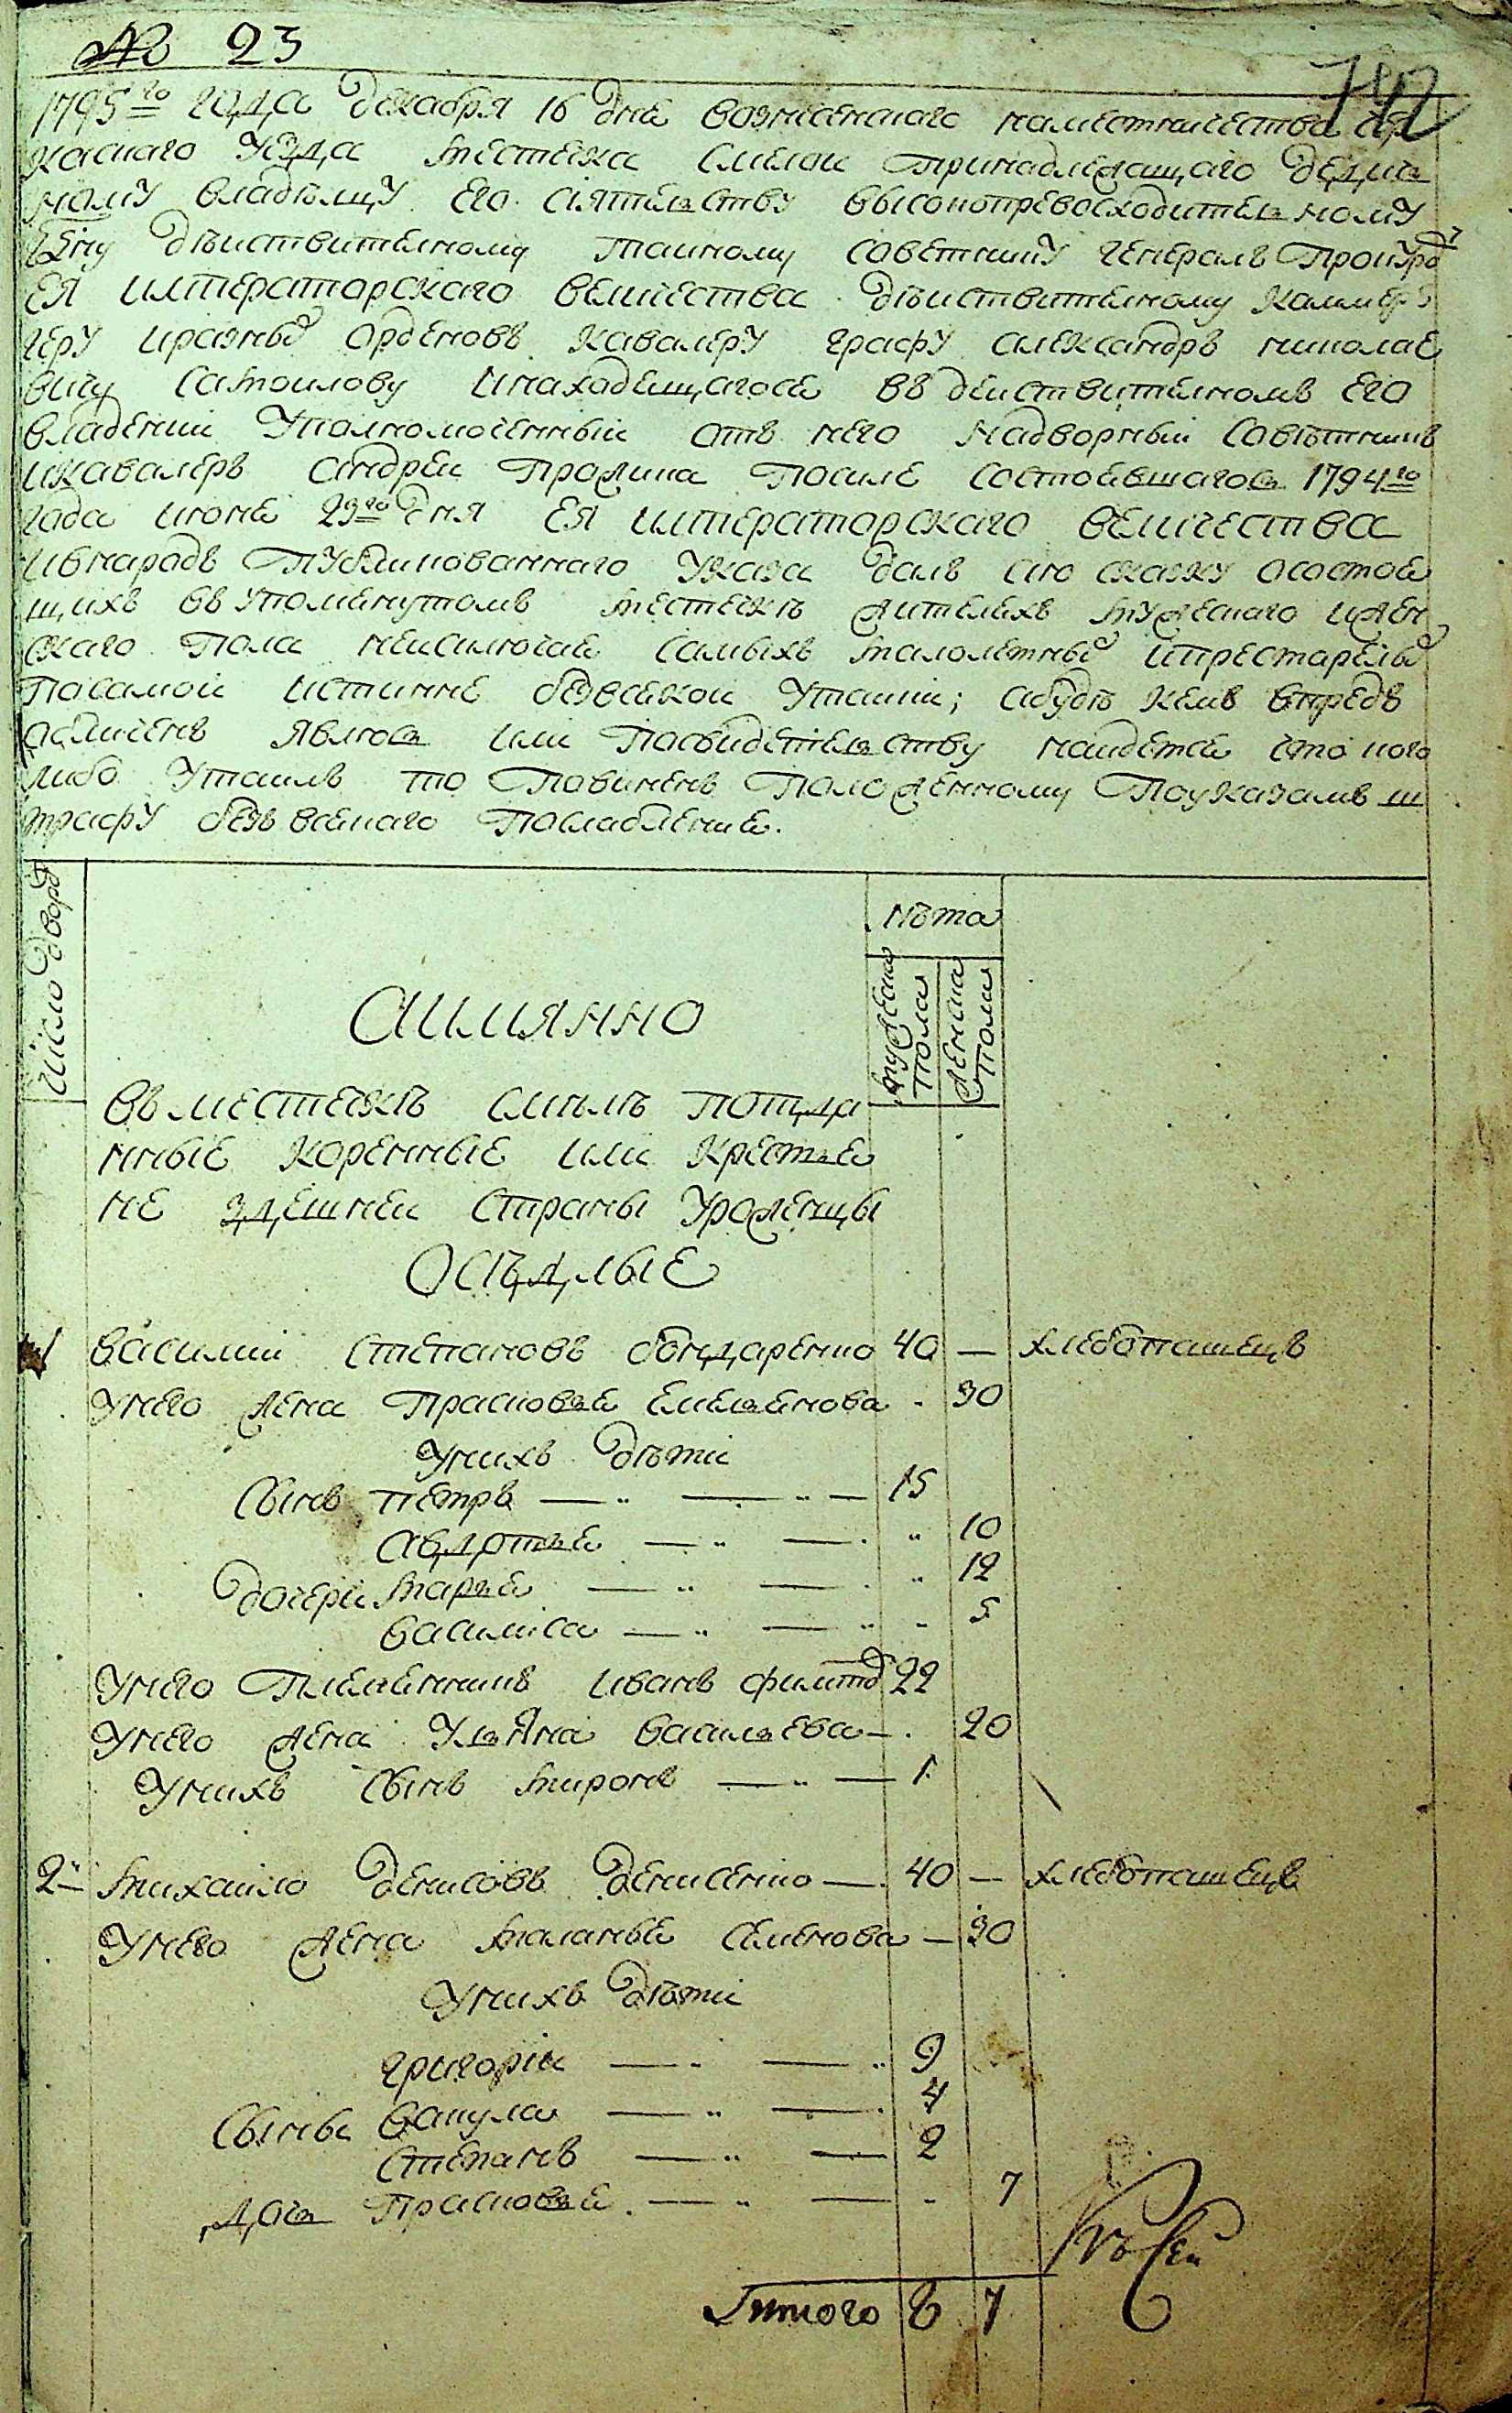 № 23
742
1795го года декабря 16 дне вознесенского наместничества чер
каскаго уезда местечка Смелои принадлежащаго дедиč
ному владелцу его сиятельству высокопревосходительному
действителному тайному советнику генералъ прокурору
ея императорскаго величества действителному каммер
геру иразных орденовъ кавалеру графу александръ николае
вичу самоилову инаходещагосе въ действителномъ его
владении уполномоченный отъ него надворный советникъ
икавалеръ андреи пражина после состоевшагось 1794го
года июне 23го дня ея императорскаго величества
ивнародъ публикованнаго указа далъ сию сказку осостое
щихъ въ упоменутомъ местечкѣ жителехъ мужескаго ижен
скаго пола неисключае самыхъ малолетных ипрестарелых
посамои истинне безвсекои утайки; абуде кемъ впредъ
обличенъ явлюсь или посвидетельству найдетсе что кого
либо утаилъ то повиненъ положенному поуказамъ ш
трафу безъ всекаго послабление.
Число дворов
лѣта
мужеска пола
женска пола
Аимянно
въ местечкѣ смѣлѣ подда
нные коренные или крестье
не здешнеи страны уроженцы
Осѣдлые
1 василии степановъ бондаренко 40 — хлебопашецъ
унего жена прасковье емельенова . 30
унихъ дѣти
сынъ петръ — „ — „ — 15
авдотье — „ — . „ 10
дочери марье — „ — . „ 12
василиса — „ — „ „ 5
унего племенникъ иванъ филипов 22
унего жена ульяна васильева — . 20
унихъ сынъ миронъ — „ — 1
2й михайло денисовъ денисенко — 40 — хлебопашецъ
унего жена маланье семенова — 30
унихъ дѣти
григории — . — „ 9
сыны вакула — „ — . 4
степанъ — „ — 2
дочь прасковье . — „ — . 7
Итого 8 7